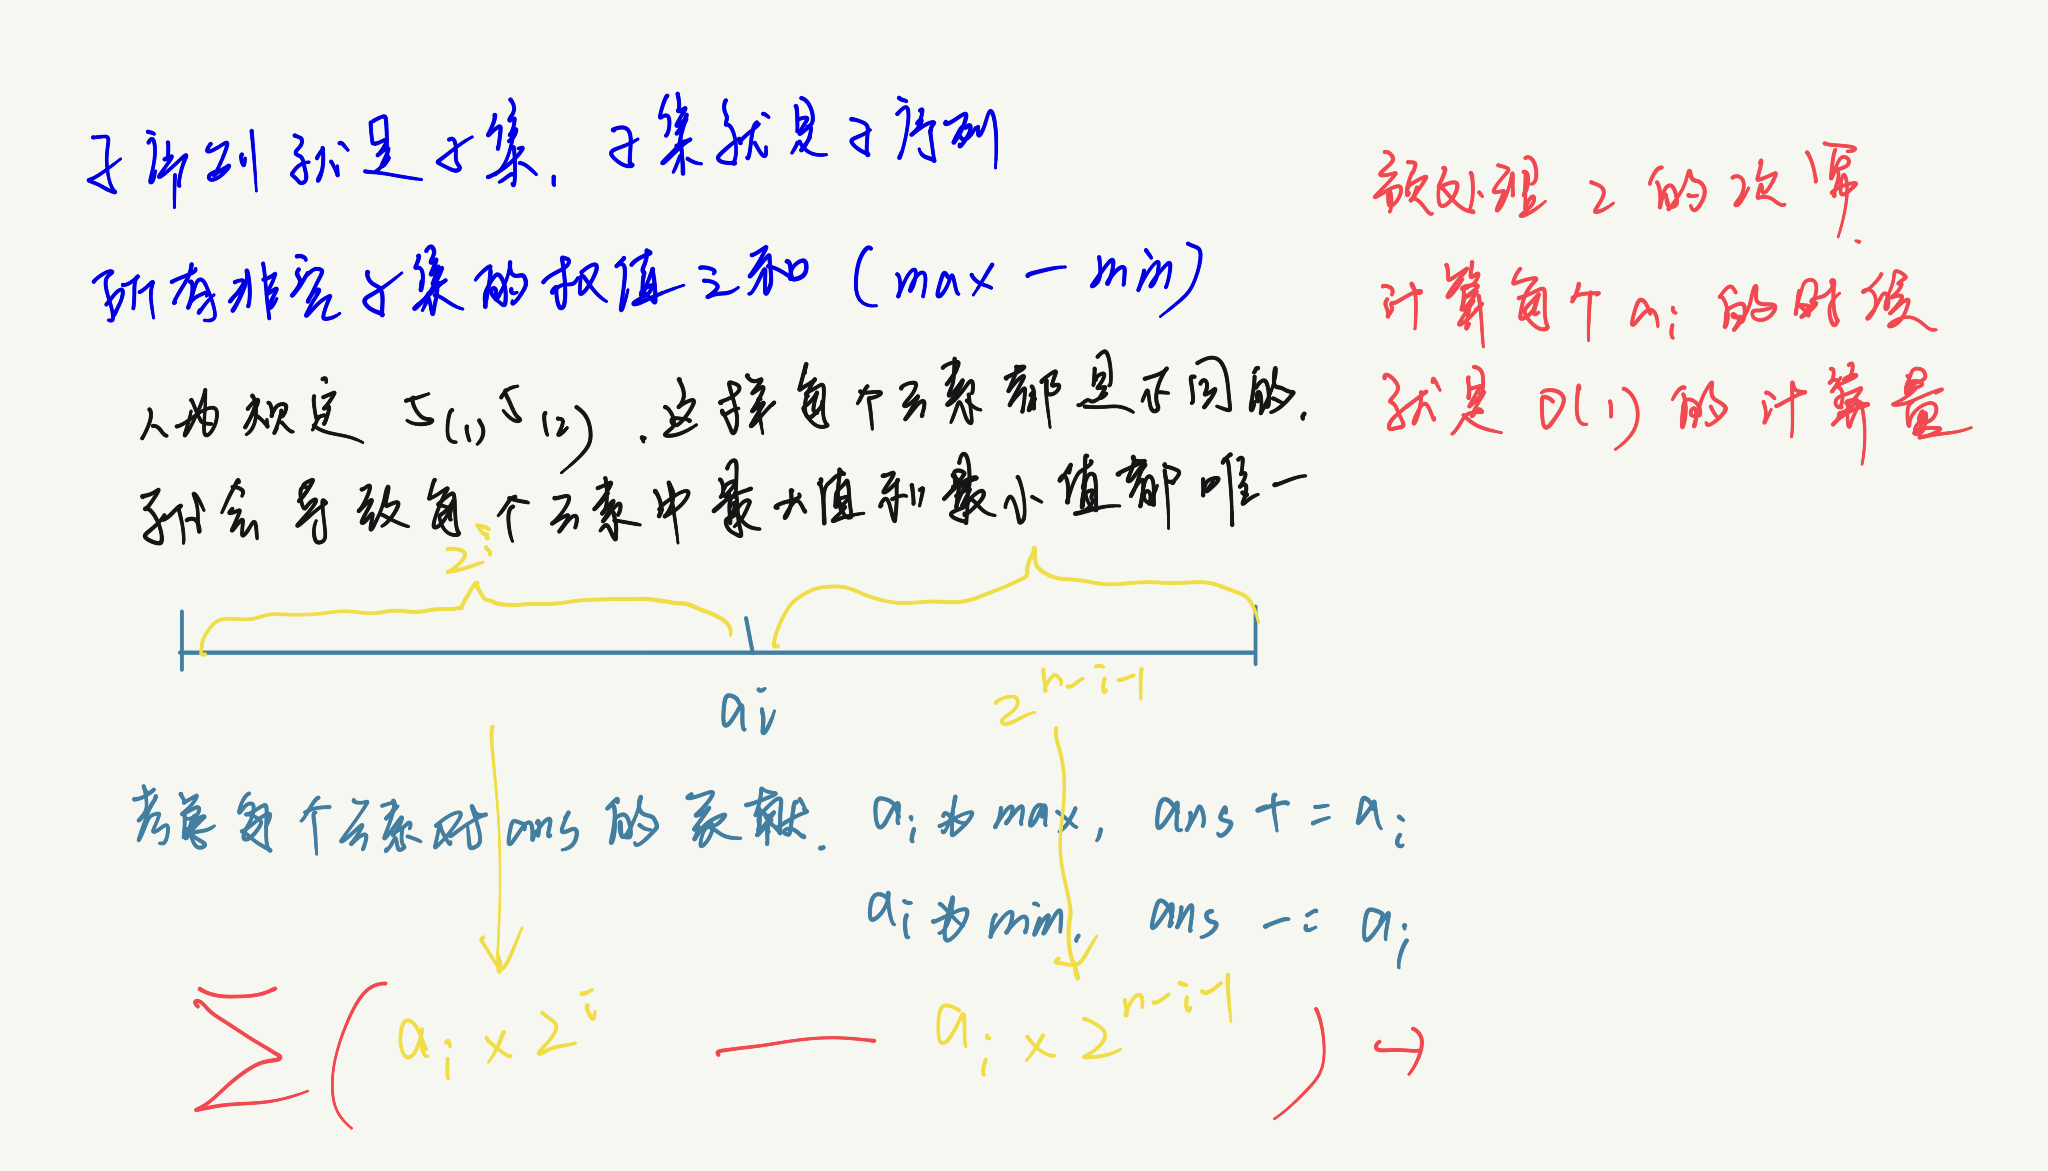 子序列就是子集. 子集就是子序列
所有非空子集的权值之和 (max - min)
人为规定 5(1) 5(2) . 这样每个元素都是不同的.
就会导致每个元素中最大值和最小值都唯一
2^i
a_i
2^{n-i-1}
考虑每个元素对ans的贡献. a_i为max, ans += a_i
a_i为min, ans -= a_i
∑ ( a_i × 2^i — a_i × 2^{n-i-1} ) →
预处理 2 的次幂.
计算每个 a_i 的时候
就是 O(1) 的计算量